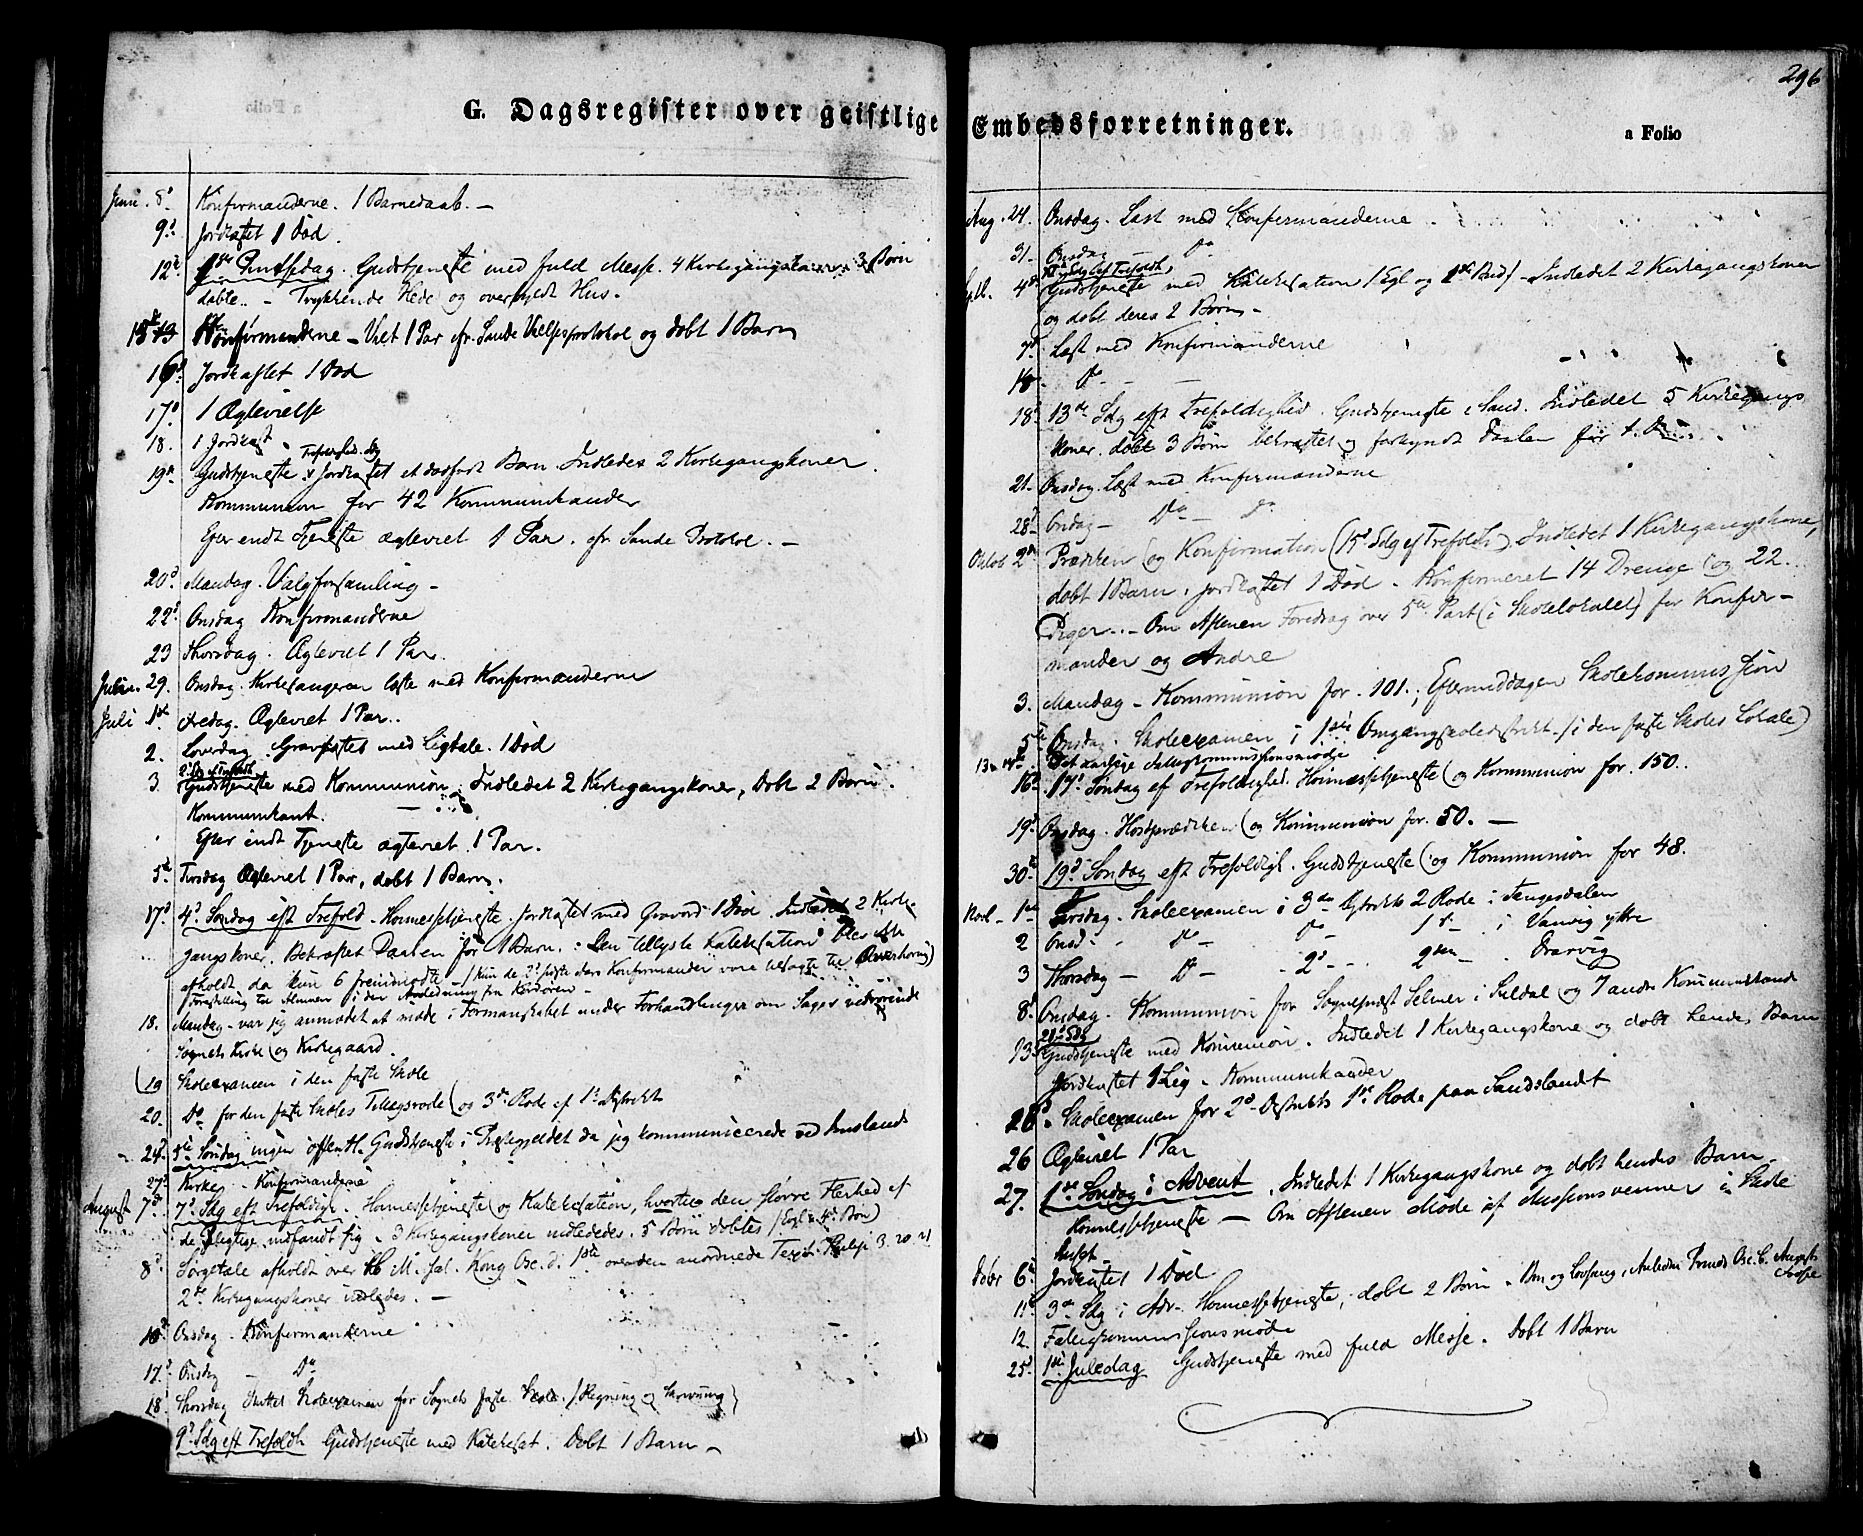 G. Dagsregister over geistlige
Juni. 8. Konfirmanderne. 1 Barnedaab. —
9. Jordkastet 1 Død.
12. 1ste Pintsedag. Gudstjeneste med fuld Messe. 4 Kirkegangskoner 3 Børn
døbte. — Trykkende Hede og overfyldt Hus.
15 Konfirmanderne — Viet 1 Par cfr. Sande Vielsesprotokol og døbt 1 Barn
16 Jordkastet 1 Død
17. 1 Ægtevielse
18. 1 Jordkast
19. Gudstjeneste Jordkastet et dødfødt Barn. Indledet 2 Kirkegangskoner.
Kommunion for 42 Kommunikander
Efter endt Tjeneste ægteviet 1 Par. cfr Sande Protokol. —
20. Mandag. Valgforsamling —
22. Onsdag Konfirmanderne
23 Thorsdag. Ægteviet 1 Par.
29. Onsdag. Kirkesangeren læste med Konfirmanderne
Juli 1 Fredag. Ægteviet 1 Par.
2. Løverdag. Gravfæstet med Ligtale. 1 Død
3. Gudstjeneste med Kommunion. Indledet 2 Kirkegangskoner, Døbt 2 Børn.
Kommunikant.
Efter endt Tjeneste ægteviet 1 Par.
5 Tirsdag Ægteviet 1 Par, døbt 1 Barn.
17. 4. Søndag eft Trefold. Høimessetjeneste. Jordkastet med Gravord 1 Død. Indledet 2 Kirke-
gangskoner. Bekræftet Daaben for 1 Barn. Den tillyste Katekisation blev ei
afholdt, da kun 6 fremmødte
18. Mandag — var jeg anmodet at møde i Formanskabet under Forhandlinger om Sager vedrørende
Sognets Kirke og Kirkegaard.
19 Skoleexamen i den faste Skole
20. Do for den faste Skoles Tillægsrode og 3die Rode af 1. Distrikt
24. 5te Søndag ingen offentl. Gudstjeneste i Præstegjeldet da jeg kommunicerede ved
27. Kirke — Konfirmanderne
August 7. 7. Sdg eft Trefoldigh. Høimessetjeneste og Katekisation, hvortil den større Flerhed af
de pligtige indfandt sig. 3 Kirkegangskoner indlededes. 5 Børn døbtes
8. Sørgetale afholdt over H. M. sal. Kong Osc. d. 1ste ovenden anordnede Text. Philip 3. 20. 21
2de Kirkegangskoner indledes. —
10 Onsdag. Konfirmanderne
17. Onsdag — Do
18. Thorsdag Skoleexamen for Sognets faste Skole. / Regning og Skrivning
9. Sdg eft Trefoldh Gudstjeneste med Katekisat. Døbt 1 Barn —
Embedsforretninger.
a Folio
296
Aug. 24. Onsdag. Læst med Konfirmanderne
31. Onsdag — Do
4. Gudstjeneste med Katekisation — Indledet 2 Kirkegangskoner
og døbt deres 2 Børn —
7. Læst med Konfirmanderne
Do —
18. 13de Sdg eft Trefoldighed. Gudstjeneste i Sand. Indledet 5 Kirkegangs
koner. døbt 3 Børn bekræftet og forkyndt Daaben for 1.
21. Onsdag. Læst med Konfirmanderne
28. Onsdag — Do — Do
Oktob 2. Prædiken og Konfirmation (15 Sdg ef Trefoldh) Indledet 1 Kirkegangskone,
døbt 1 Barn, jordkastet 1 Død. Konfirmeret 14 Drenge og 22
Piger. — Om Aftenen Foredrag over 5te Part (i Skolelokalet) for Konfir-
mander og Andre
3. Mandag — Kommunion for 101.; Eftermiddagen Skolekommission
5. Onsdag. Skoleexamen i 1ste Omgangsskoledistrikt. /i den faste Skoles Lokale)
13 14. Det aarlige Fattigkommissionsmøde
16. 17. Søndag ef Trefoldighed. Høimessetjeneste og Kommunion for 150.
19. Onsdag. Høstprædiken og Kommunion for 50. —
30. 19. Søndag eft Trefoldigh. Gudstjeneste og Kommunion for 48.
1. Tirsdag. Skoleexamen i 3die Distrikts 2 Rode i Tengesdalen
2 Onsd. Do — Do 1 — i Vanvig ytre
3 Thorsdag — Do — 2 — 2den —
8. Onsdag. Kommunion for Sognepræst Selmer i Suldal og 7 andre Kommunikand
13. Gudstjeneste med Kommunion. Indledet 1 Kirkegangskone og døbt hendes Barn
Jordkastet 1 Lig — Kommunikander
Skoleexamen for 2. Distrikts 1ste Rode paa Sandslandet
26 Ægteviet 1 Par
27. 1ste Søndag i Advent. Indledet 1 Kirkegangskone og døbt hendes Barn
Høimessetjeneste — Om Aftenen Møde af Missionsvenner i Skole
huset.
6. Jordkastet 1 Død
11. 3die Sdg i Adv. Høimessetjeneste, døbt 2 Børn. Bøn og Lovsang, Anledn Prinds Osc. C. Augusts
12. Fattigkommissionsmøde
25. 1ste Juledag Gudstjeneste med fuld Messe. Døbt 1 Barn